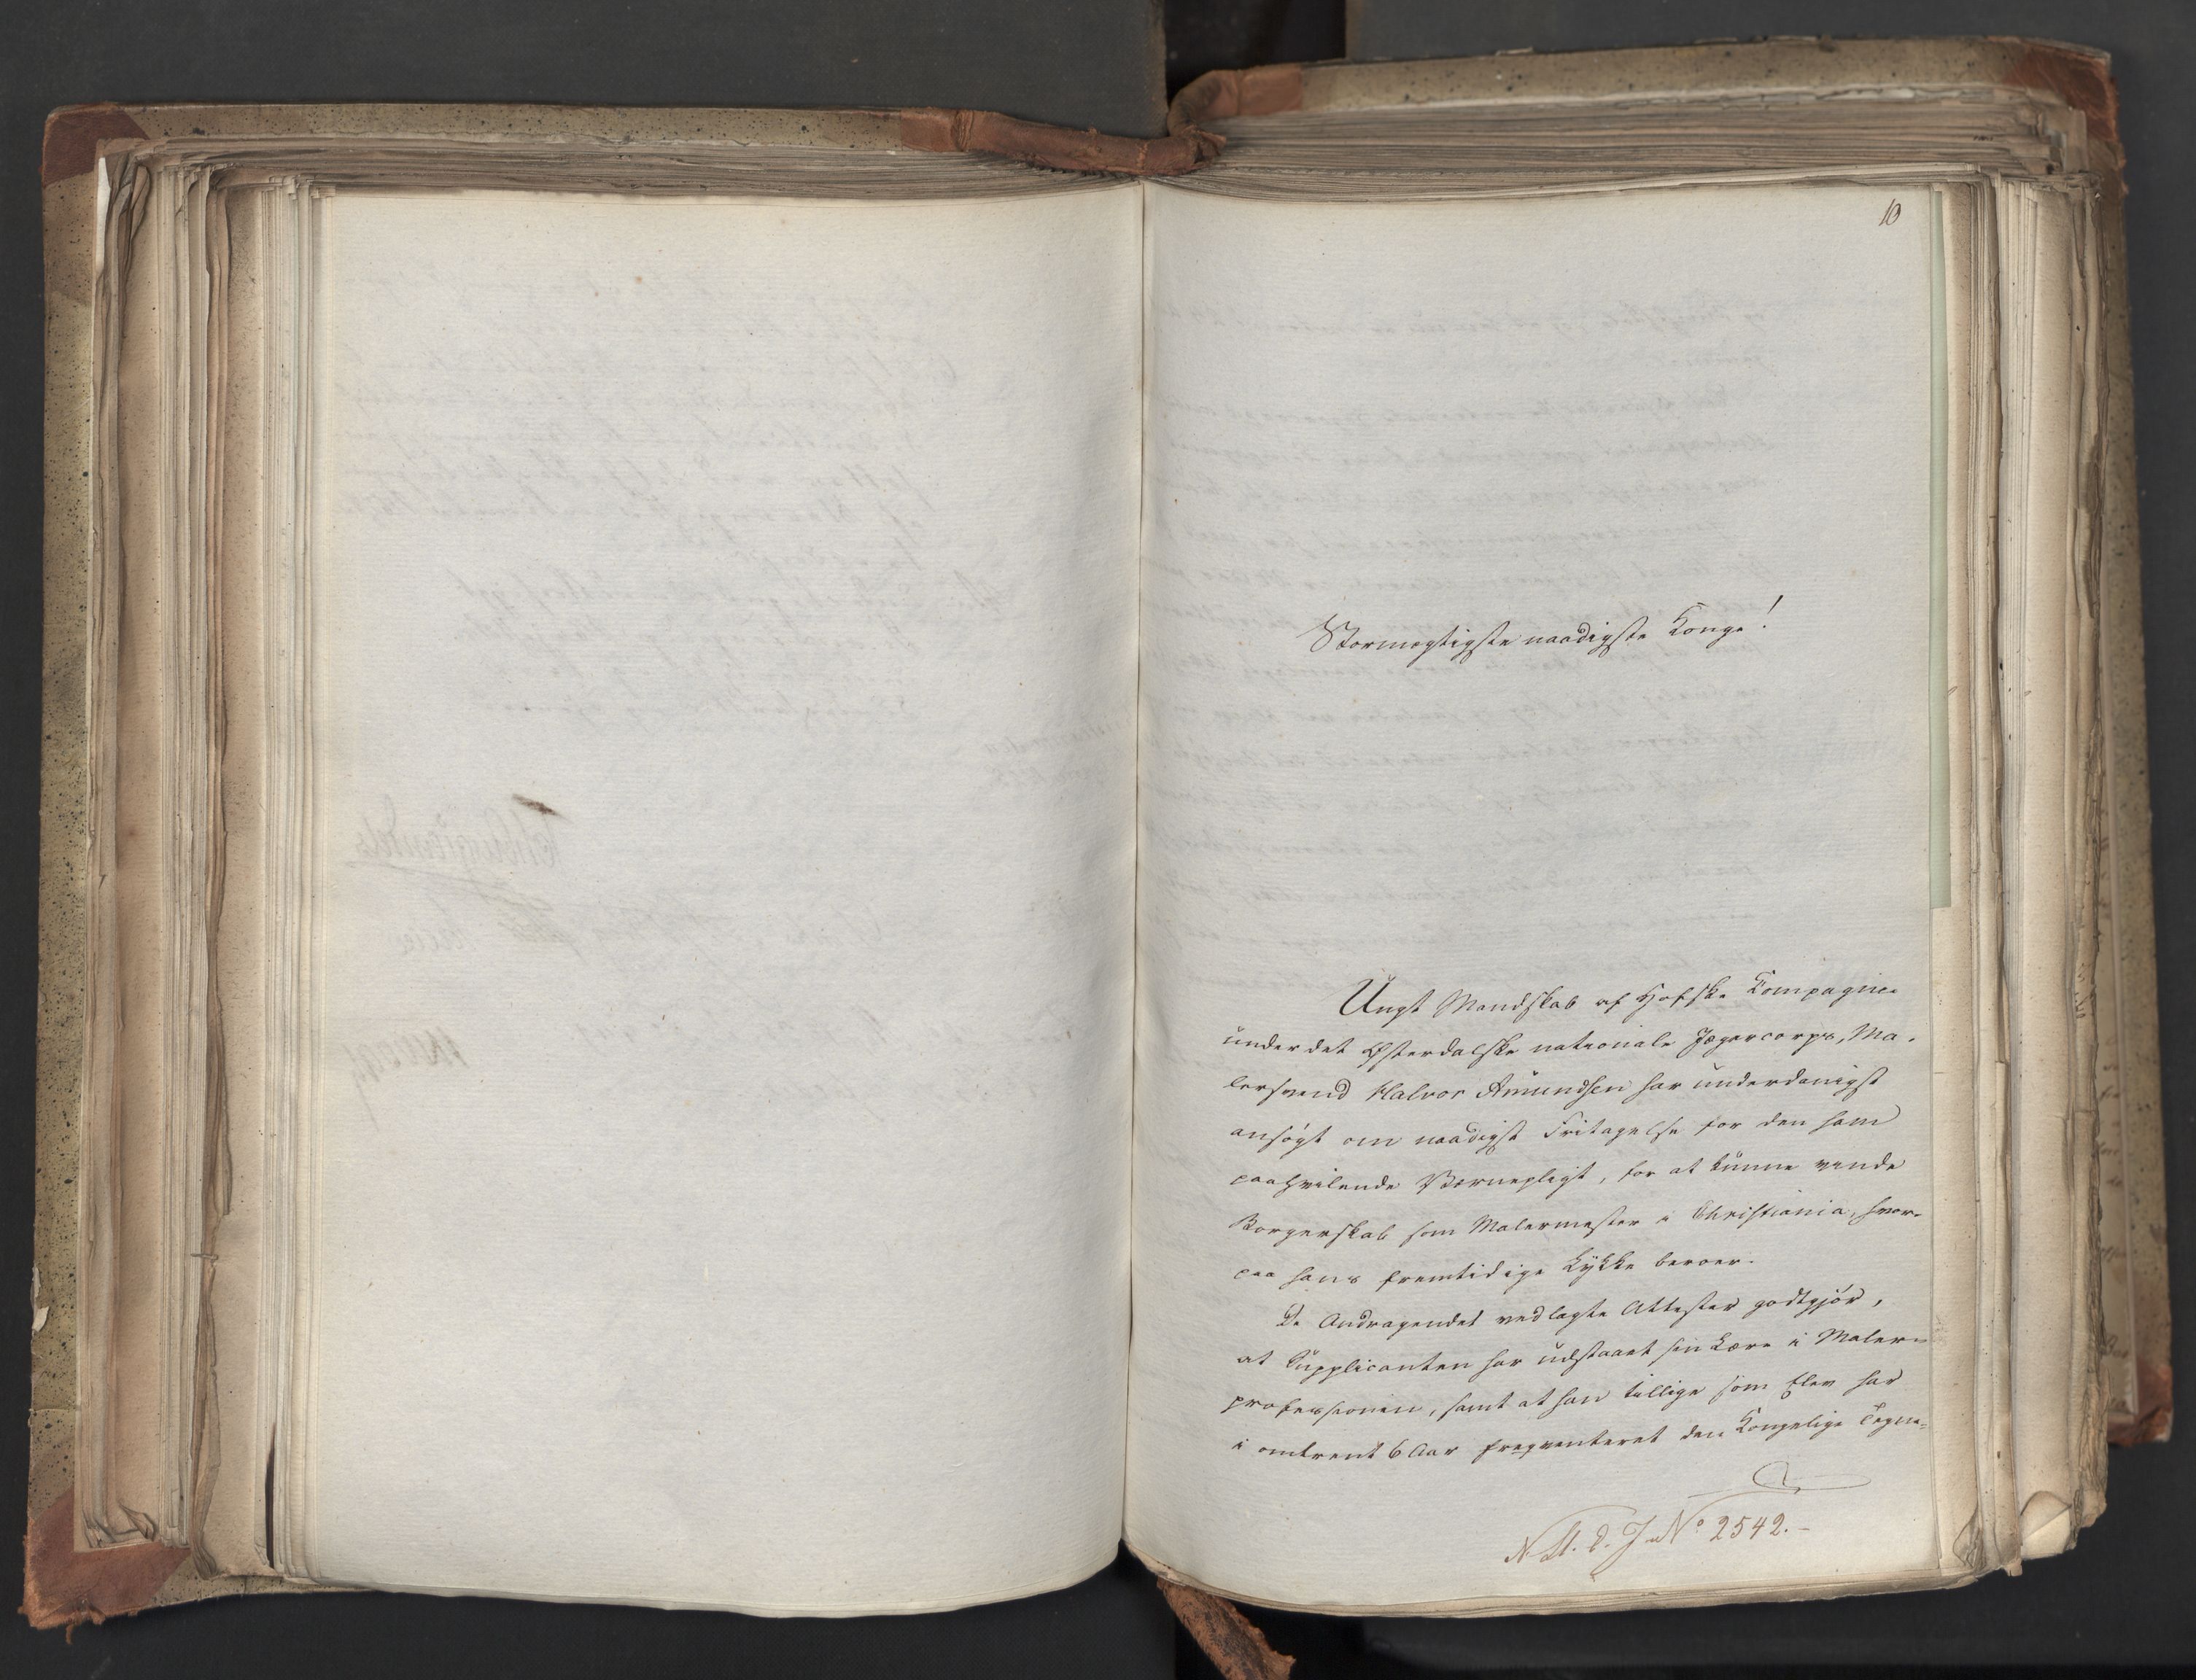 10
Stormægtigste naadigste Konge!
Ungt Mandskab af Hofske Kompagnie
under det Østerdalske nationale Jægercorps, Ma-
lersvend Halvor Amundsen har underdanigst
ansøgt om naadigst Fritagelse for den ham
paahvilende Værnepligt, for at kunne vinde
Borgerskab som Malermester i Christiania, hvor-
paa hans fremtidige Lykke beroer.
De Andragendet vedlagte Attester godtgjør,
at Supplicanten har udstaaet sin Lære i Maler-
professionen, samt at han tillige som Elev har
i omtrent 6 Aar freqventeret den Kongelige Tegne-
N. St. S. J. No 2542.-